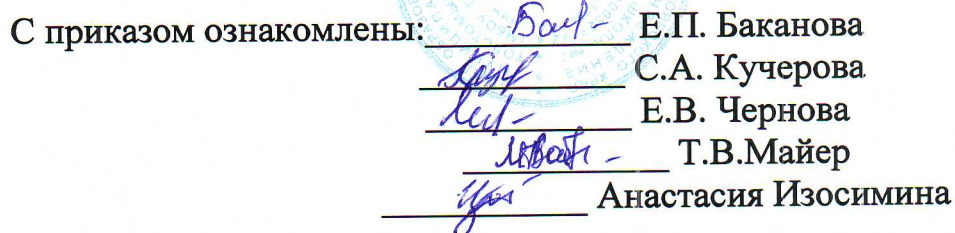 С приказом ознакомлены: Е.П. Баканова
С.А. Кучерова
Е.В. Чернова
Т.В.Майер
Анастасия Изосимина